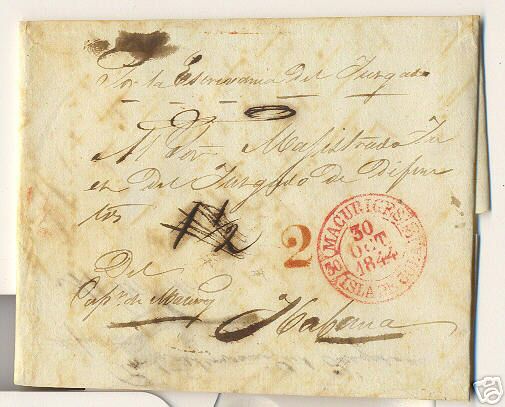 Por la Escrivania del Jusgado
Al Sor. Magistrado Ju
ez Del Jusgado de Difun
tos
1 1/2
2
MACURIGES
30
OCT.
1844
ISLA DE CUBA
Del
Capn. de
Habana